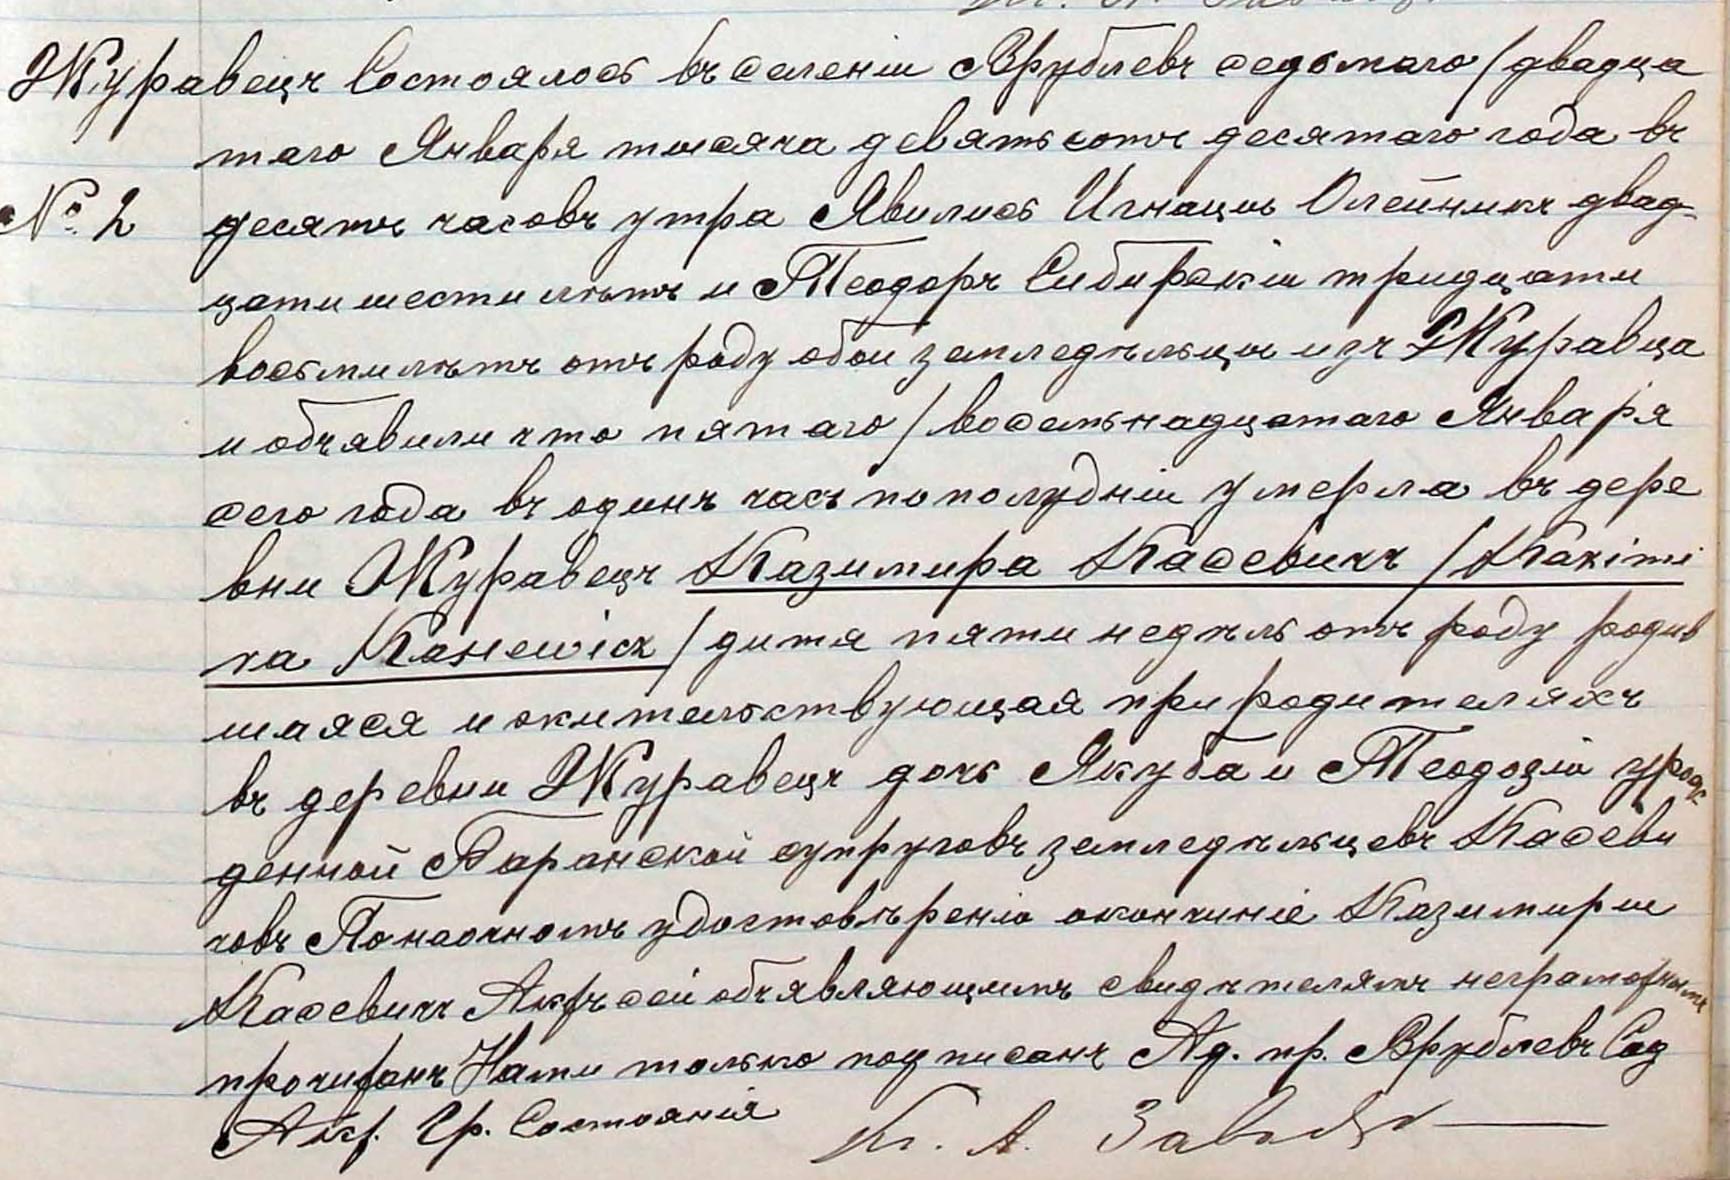 Журавецъ Состоялось въ селеніи Врублевъ седьмаго / двадца
таго Января тысяча девятьсотъ десятаго года въ
№ 2 десять часовъ утра Явились Игнацы Олейникъ двад-
цати шести лѣтъ и Теодоръ Сибирскій тридцати
восьми лѣтъ отъ роду обои земледѣльцы изъ Журавца
и объявили что пятаго / восемьнадцатаго Января
сего года въ одинъ часъ по полудніи умерла въ дере
вни Журавецъ Казимира Касевичъ / Kazimi
ra Kasiewicz / дитя пяти недѣль отъ роду родив
шаяся и жительствующая при родителяхъ
въ деревни Журавецъ дочь Якуба и Теодозіи урож
денной Баранской супруговъ земледѣльцевъ Касеви
човъ По наочномъ удостовѣреніи окончиніе Казимиры
Касевичъ Актъ сей объявляющимъ свидѣтелямъ неграмотнымъ
прочитанъ Нами только подписанъ Ад. пр. Врублевъ Сод
Акт. Гр. Состоянія Кс. А.